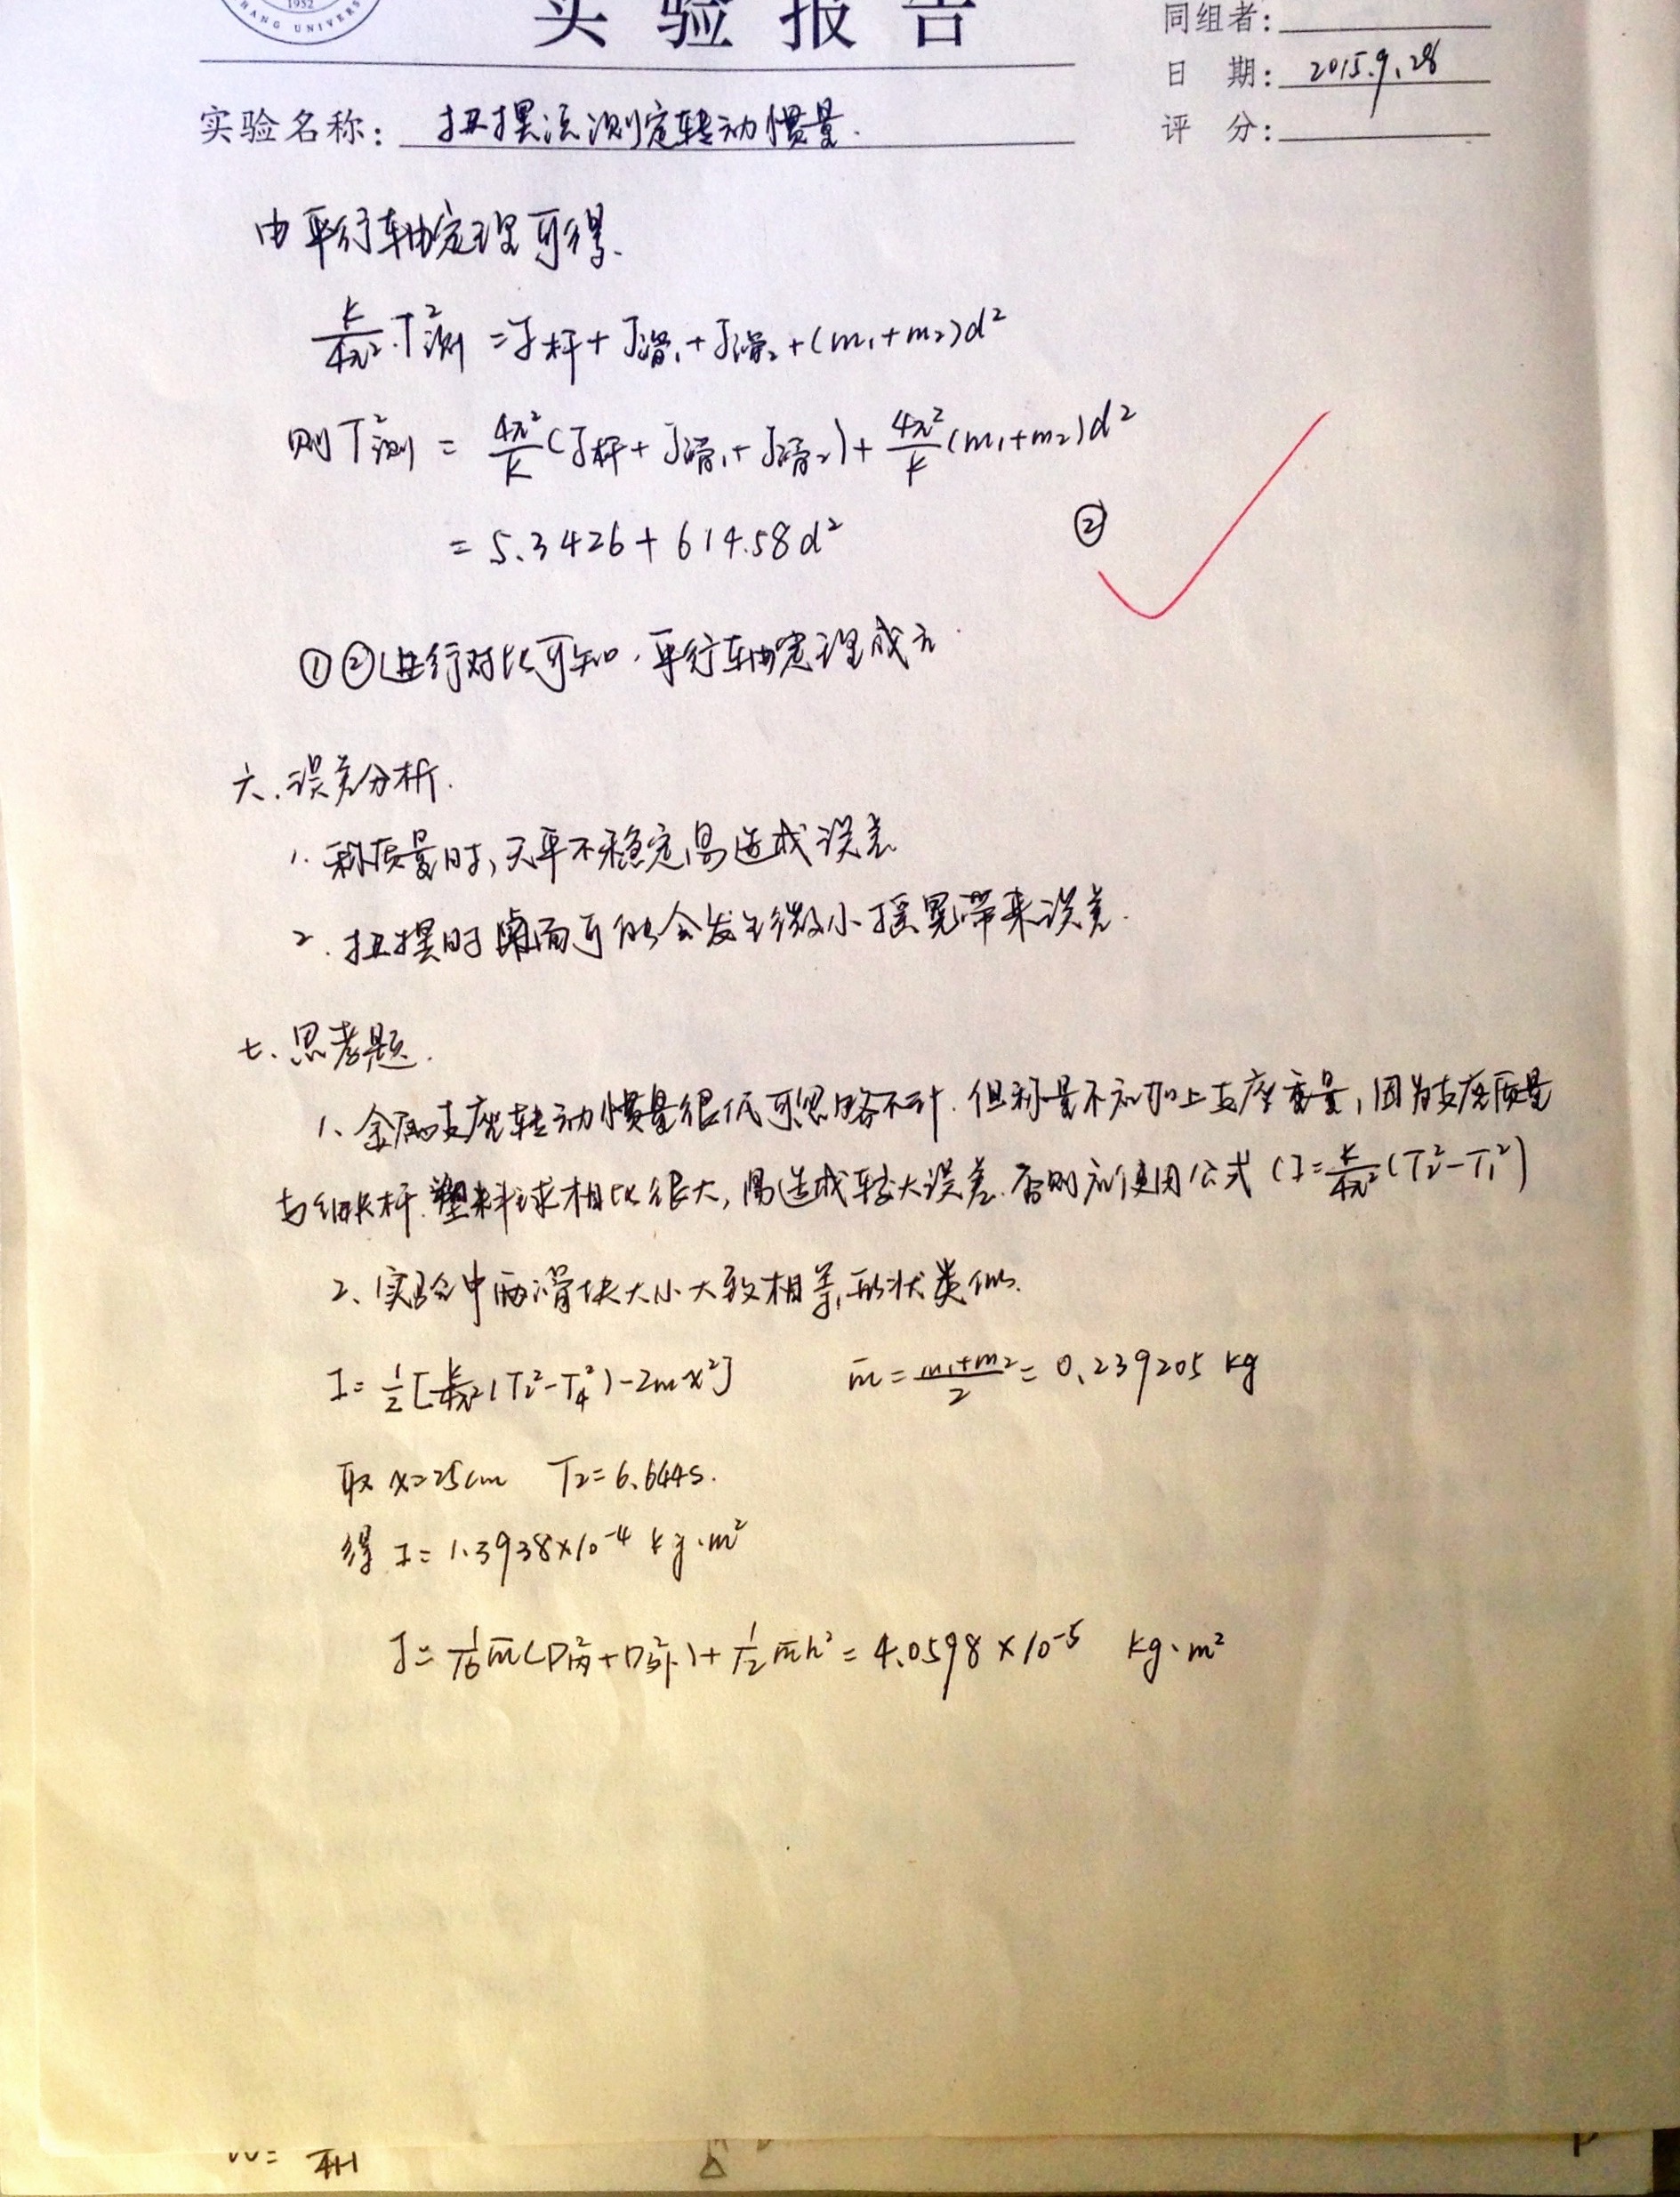 1952
HANG UNIVERS
实验报告
同组者:
日 期: 2015.9.28
实验名称: 扭摆法测定转动惯量.
评 分:
由平行轴定理可得.
K/4π² · T²测 = J杆 + J滑1 + J滑2 + (m1+m2)d²
则 T²测 = 4π²/K (J杆 + J滑1 + J滑2) + 4π²/K (m1+m2)d²
= 5.3426 + 614.58d² ②
①②进行对比可知,平行轴定理成立.
六.误差分析.
1. 称质量时,天平不稳定,易造成误差
2. 扭摆时桌面可能会发生微小摇晃带来误差.
七、思考题.
1、金属支座转动惯量很低可忽略不计.但称量不应加上支座重量,因为支座质量
与细长杆.塑料球相比很大,易造成较大误差.否则应使用公式 (I=K/4π²(T2²-T1²)
2、实验中两滑块大小大致相等,形状类似.
I= 1/2[K/4π²(T2²-T4²)-2mx²] m̄ = (m1+m2)/2 = 0.239205 kg
取 x=25cm T2=6.644s.
得 I= 1.3938×10⁻⁴ kg·m²
J= 1/16 m̄(D²内+D²外)+1/12 m̄h² = 4.0598×10⁻⁵ kg·m²